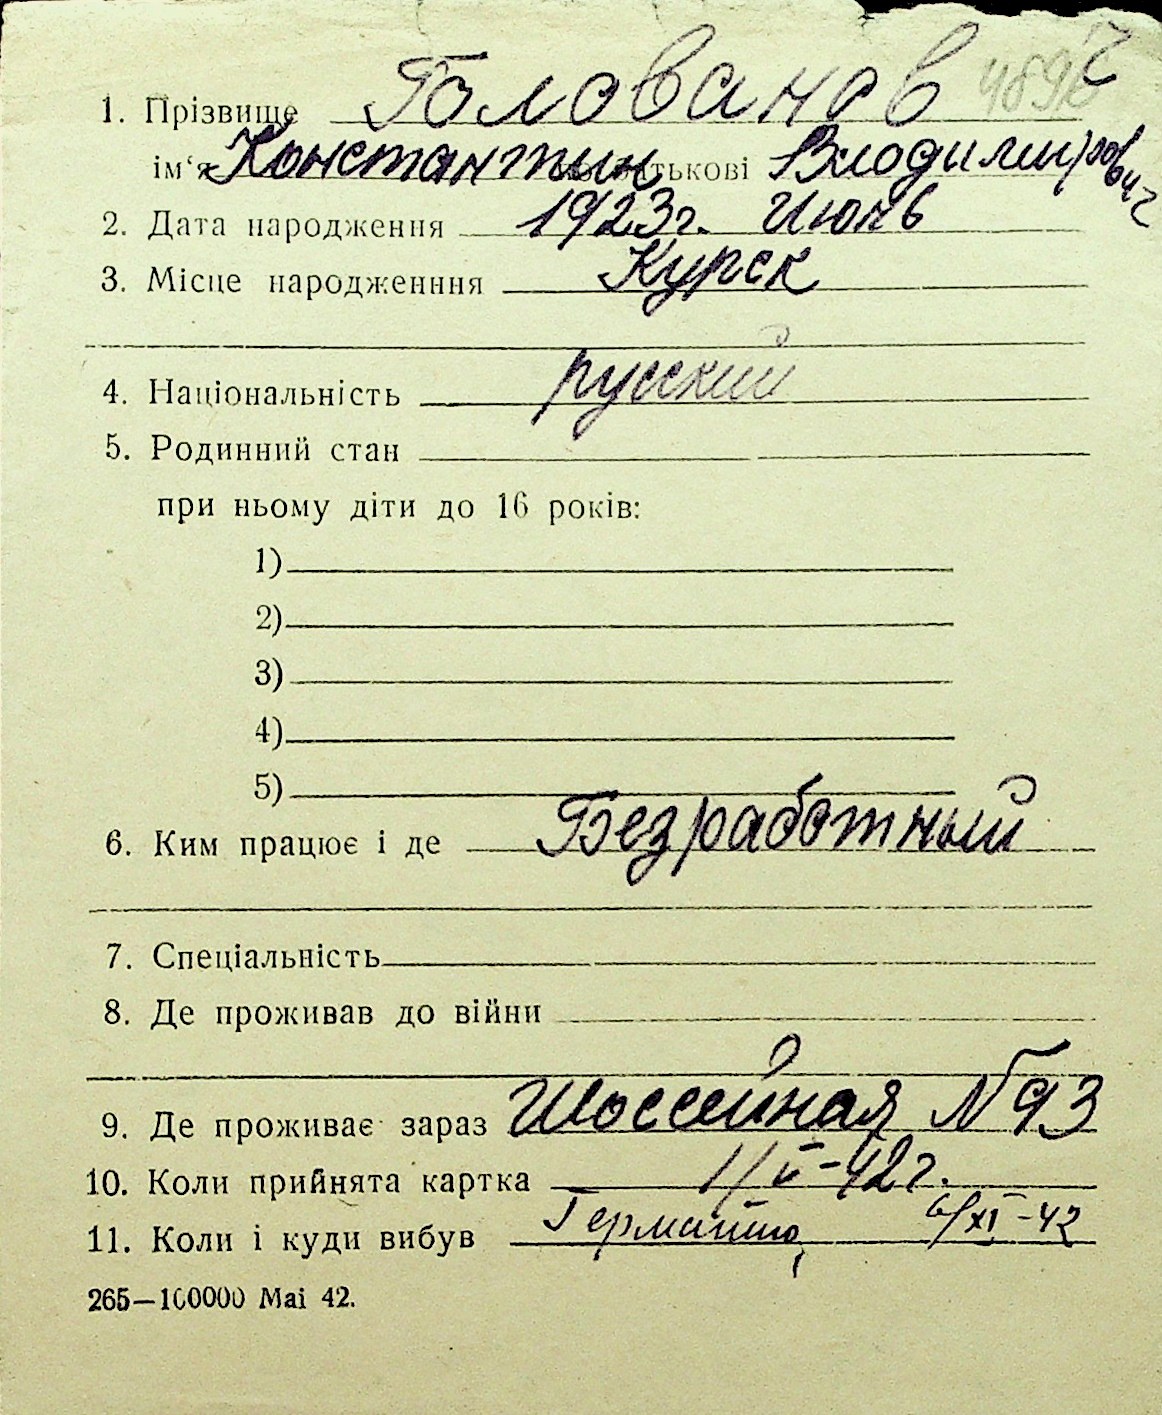 1. Прізвище Голованов
ім‘я Константин по батькові Влодимирович
2. Дата народження 1923г. Июнь
3. Місце народженння Курск
4. Національність русский
5. Родинний стан
при ньому діти до 16 років:
1)
2)
3)
4)
5)
6. Ким працює і де Безработный
7. Спеціальність
8. Де проживав до війни
9. Де проживає зараз Шоссейная №93
10. Коли прийнята картка -42г.
11. Коли і куди вибув Германию, /XI-42
265—100000 Mai 42.